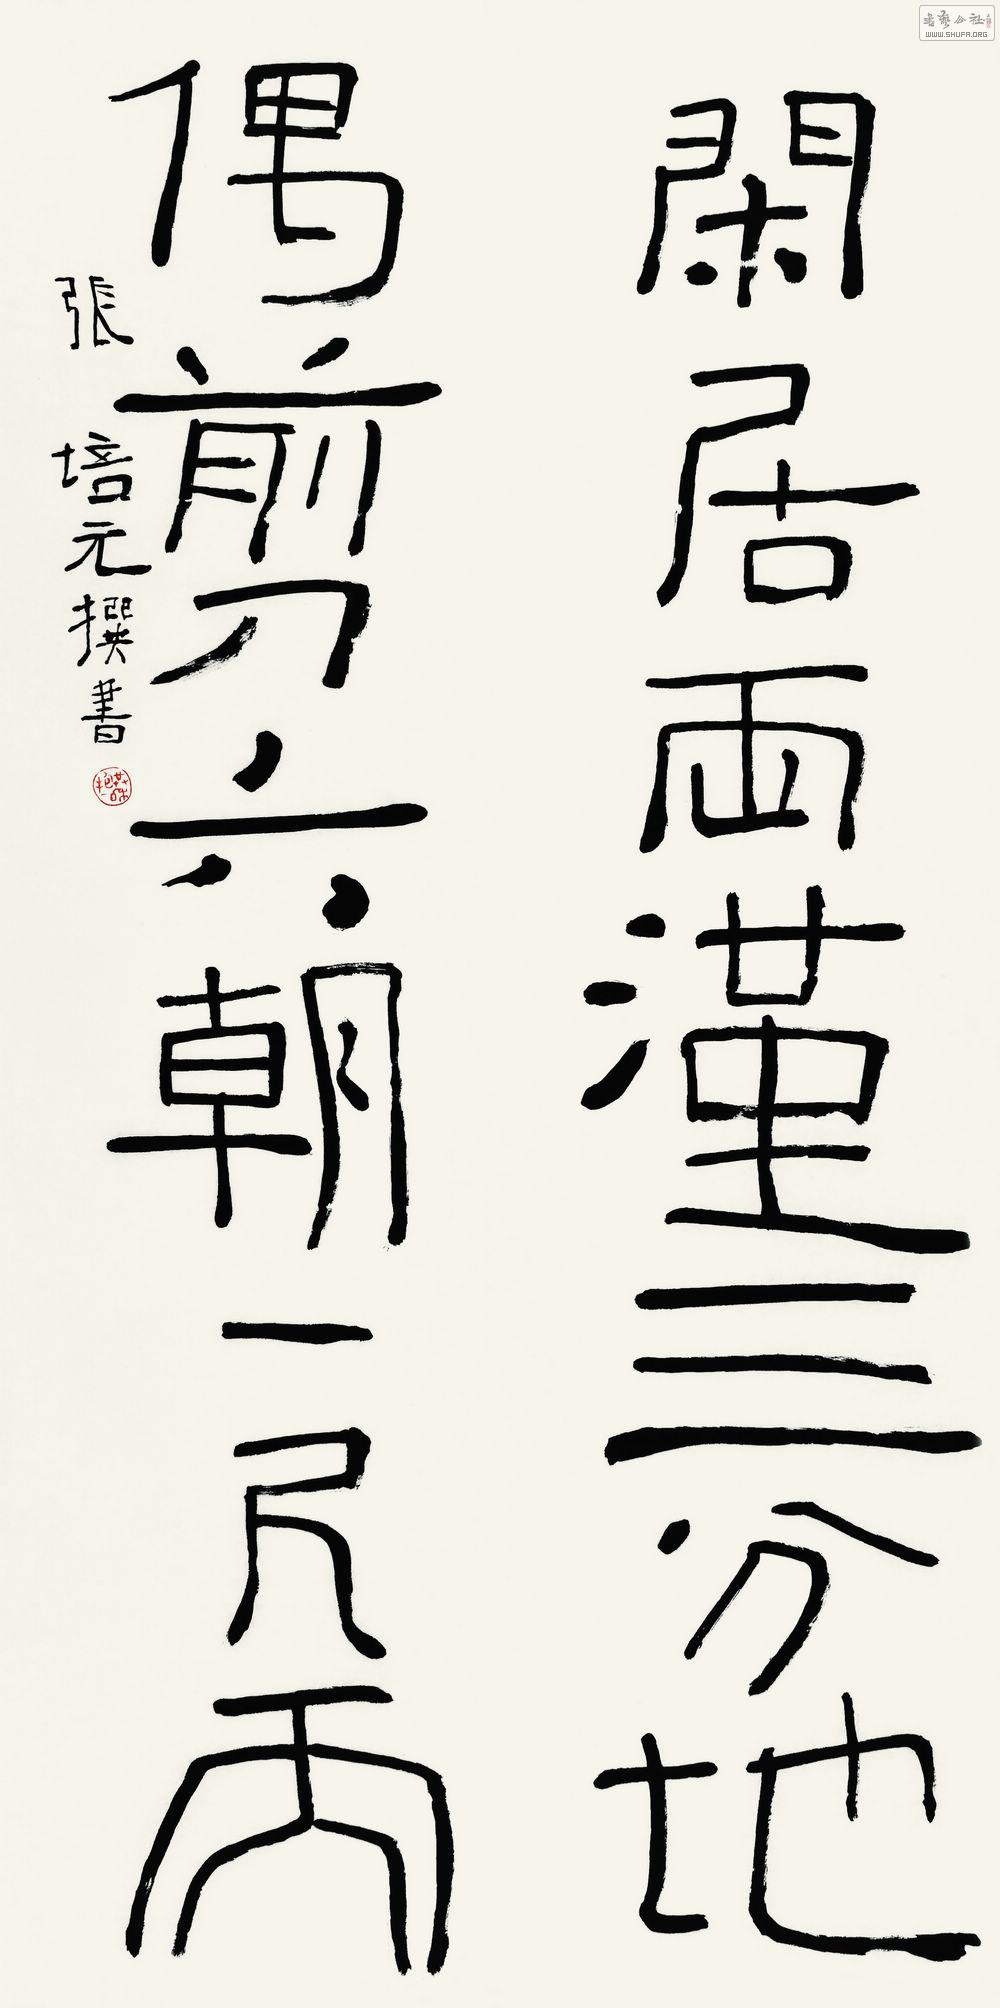 閑居両漢三分地
偶剪六朝一尺天
張培元撰書
書藝公社
WWW.SHUFA.ORG